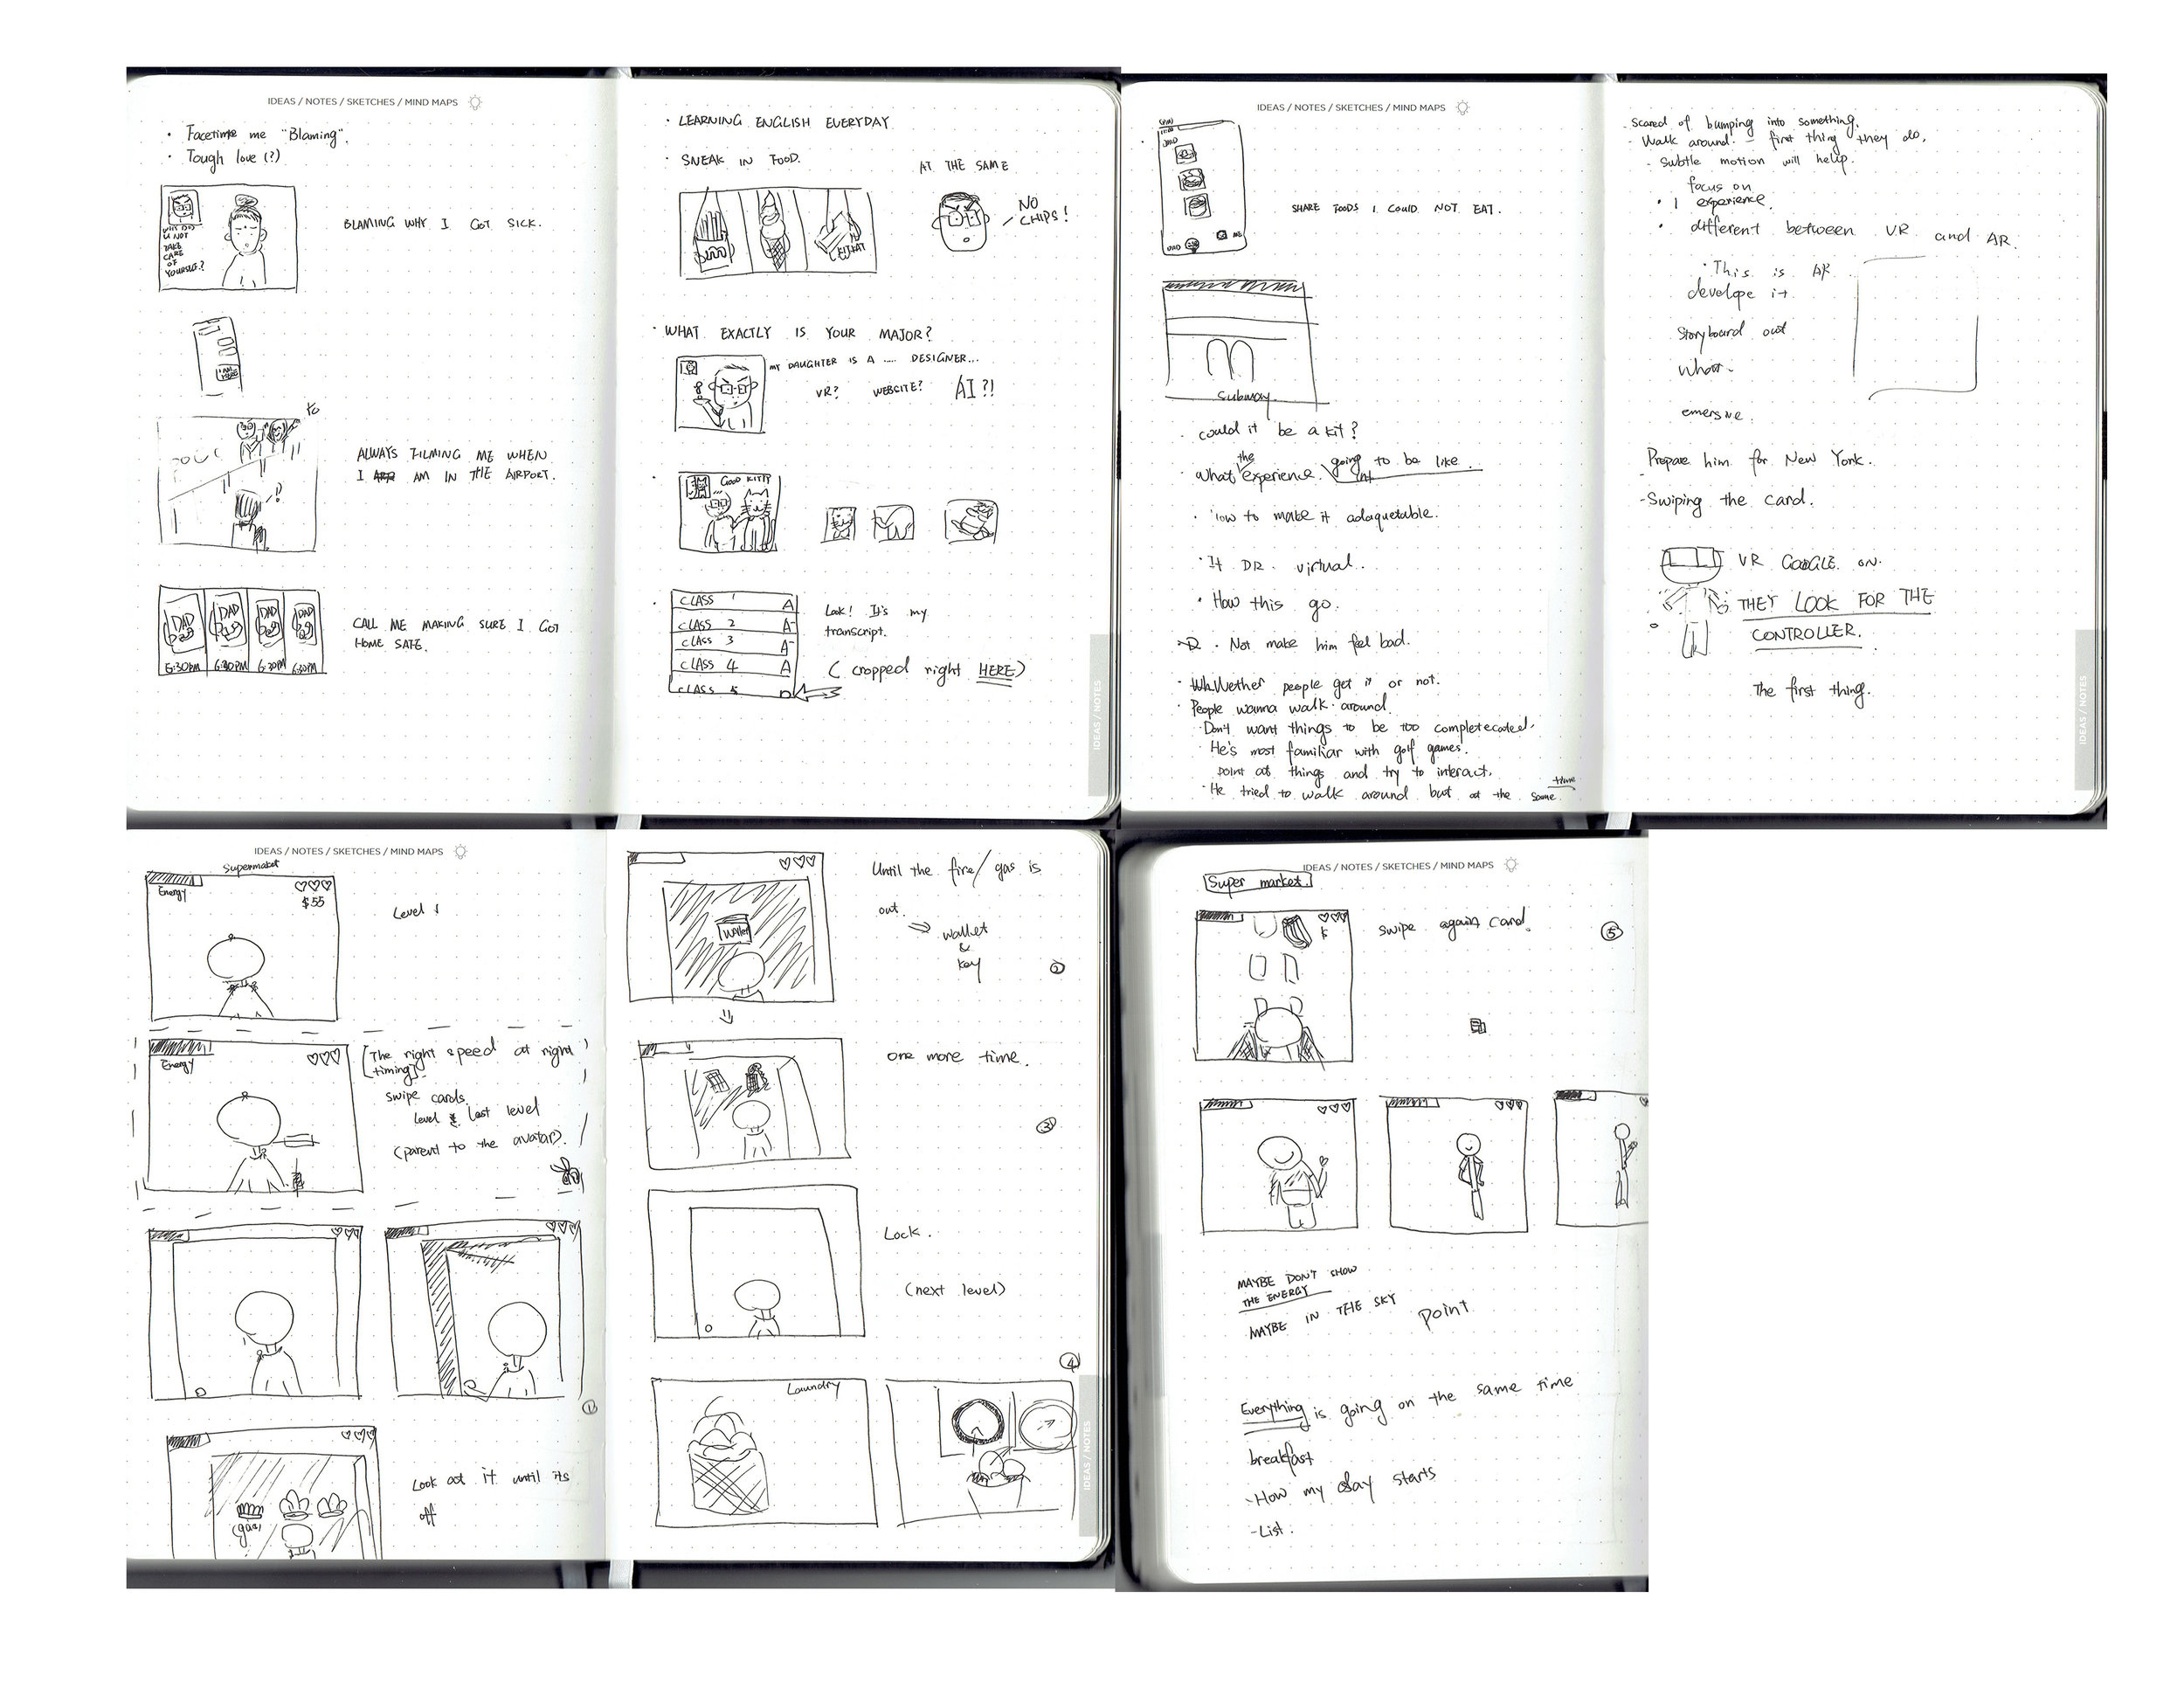 IDEAS / NOTES / SKETCHES / MIND MAPS
• Facetime me "Blaming".
• Tough love (?)
WHY DO
U NOT
TAKE
CARE
OF
YOURSELF?
BLAMING WHY I GOT SICK.
I AM
ALWAYS FILMING ME WHEN
I AM IN THE AIRPORT.
DAD DAD DAD DAD
6:30PM 6:30PM 6:30PM 6:30PM
CALL ME MAKING SURE I GOT
HOME SAFE.
• LEARNING ENGLISH EVERYDAY
• SNEAK IN FOOD.
AT THE SAME
KITKAT
NO
CHIPS!
• WHAT EXACTLY IS YOUR MAJOR?
MY DAUGHTER IS A .... DESIGNER...
VR? WEBSITE? AI?!
GOOD KITTY
CLASS 1 A
CLASS 2 A-
CLASS 3 A-
CLASS 4 A
CLASS 5 D
Look! It's my
transcript.
( cropped right HERE)
IDEAS / NOTES
IDEAS / NOTES / SKETCHES / MIND MAPS
DAD
SHARE FOODS I COULD NOT EAT.
Subway
• could it be a kit?
• What the experience going to be like.
• How to make it adaquetable.
• If DR. virtual..
• How this go.
• Not make him feel bad.
• Whether people get it or not.
• People wanna walk around.
Don't want things to be too completecated.
• He's most familiar with golf games.
point at things and try to interact.
• He tried to walk around but at the same time
- Scared of bumping into something.
- Walk around. - first thing they do.
- Subtle motion will help.
focus on
• 1 experience.
• different between VR and AR.
• This is AR
develope it
Storyboard out
what.
emersive.
- Prepare him for New York.
- Swiping the card.
VR GOOGLE ON.
THEY LOOK FOR THE
CONTROLLER.
The first thing.
IDEAS / NOTES
IDEAS / NOTES / SKETCHES / MIND MAPS
Supermaket
Energy
$55
Level 1
Energy
(The right speed at right
timing).
swipe cards.
Level last level
(parent to the avatar).
①
(gas)
Look at it until its
off
Wallet
Until the fire/ gas is
out.
⇒ wallet
&
key
②
⇓
one more time.
③
Lock.
(next level)
④
Laundry
IDEAS / NOTES
IDEAS / NOTES / SKETCHES / MIND MAPS
Super market.
$
swipe again card.
⑤
MAYBE DON'T SHOW
THE ENERGY
MAYBE IN THE SKY
point
Everything is going on the same time
breakfast
- How my day starts
- List.